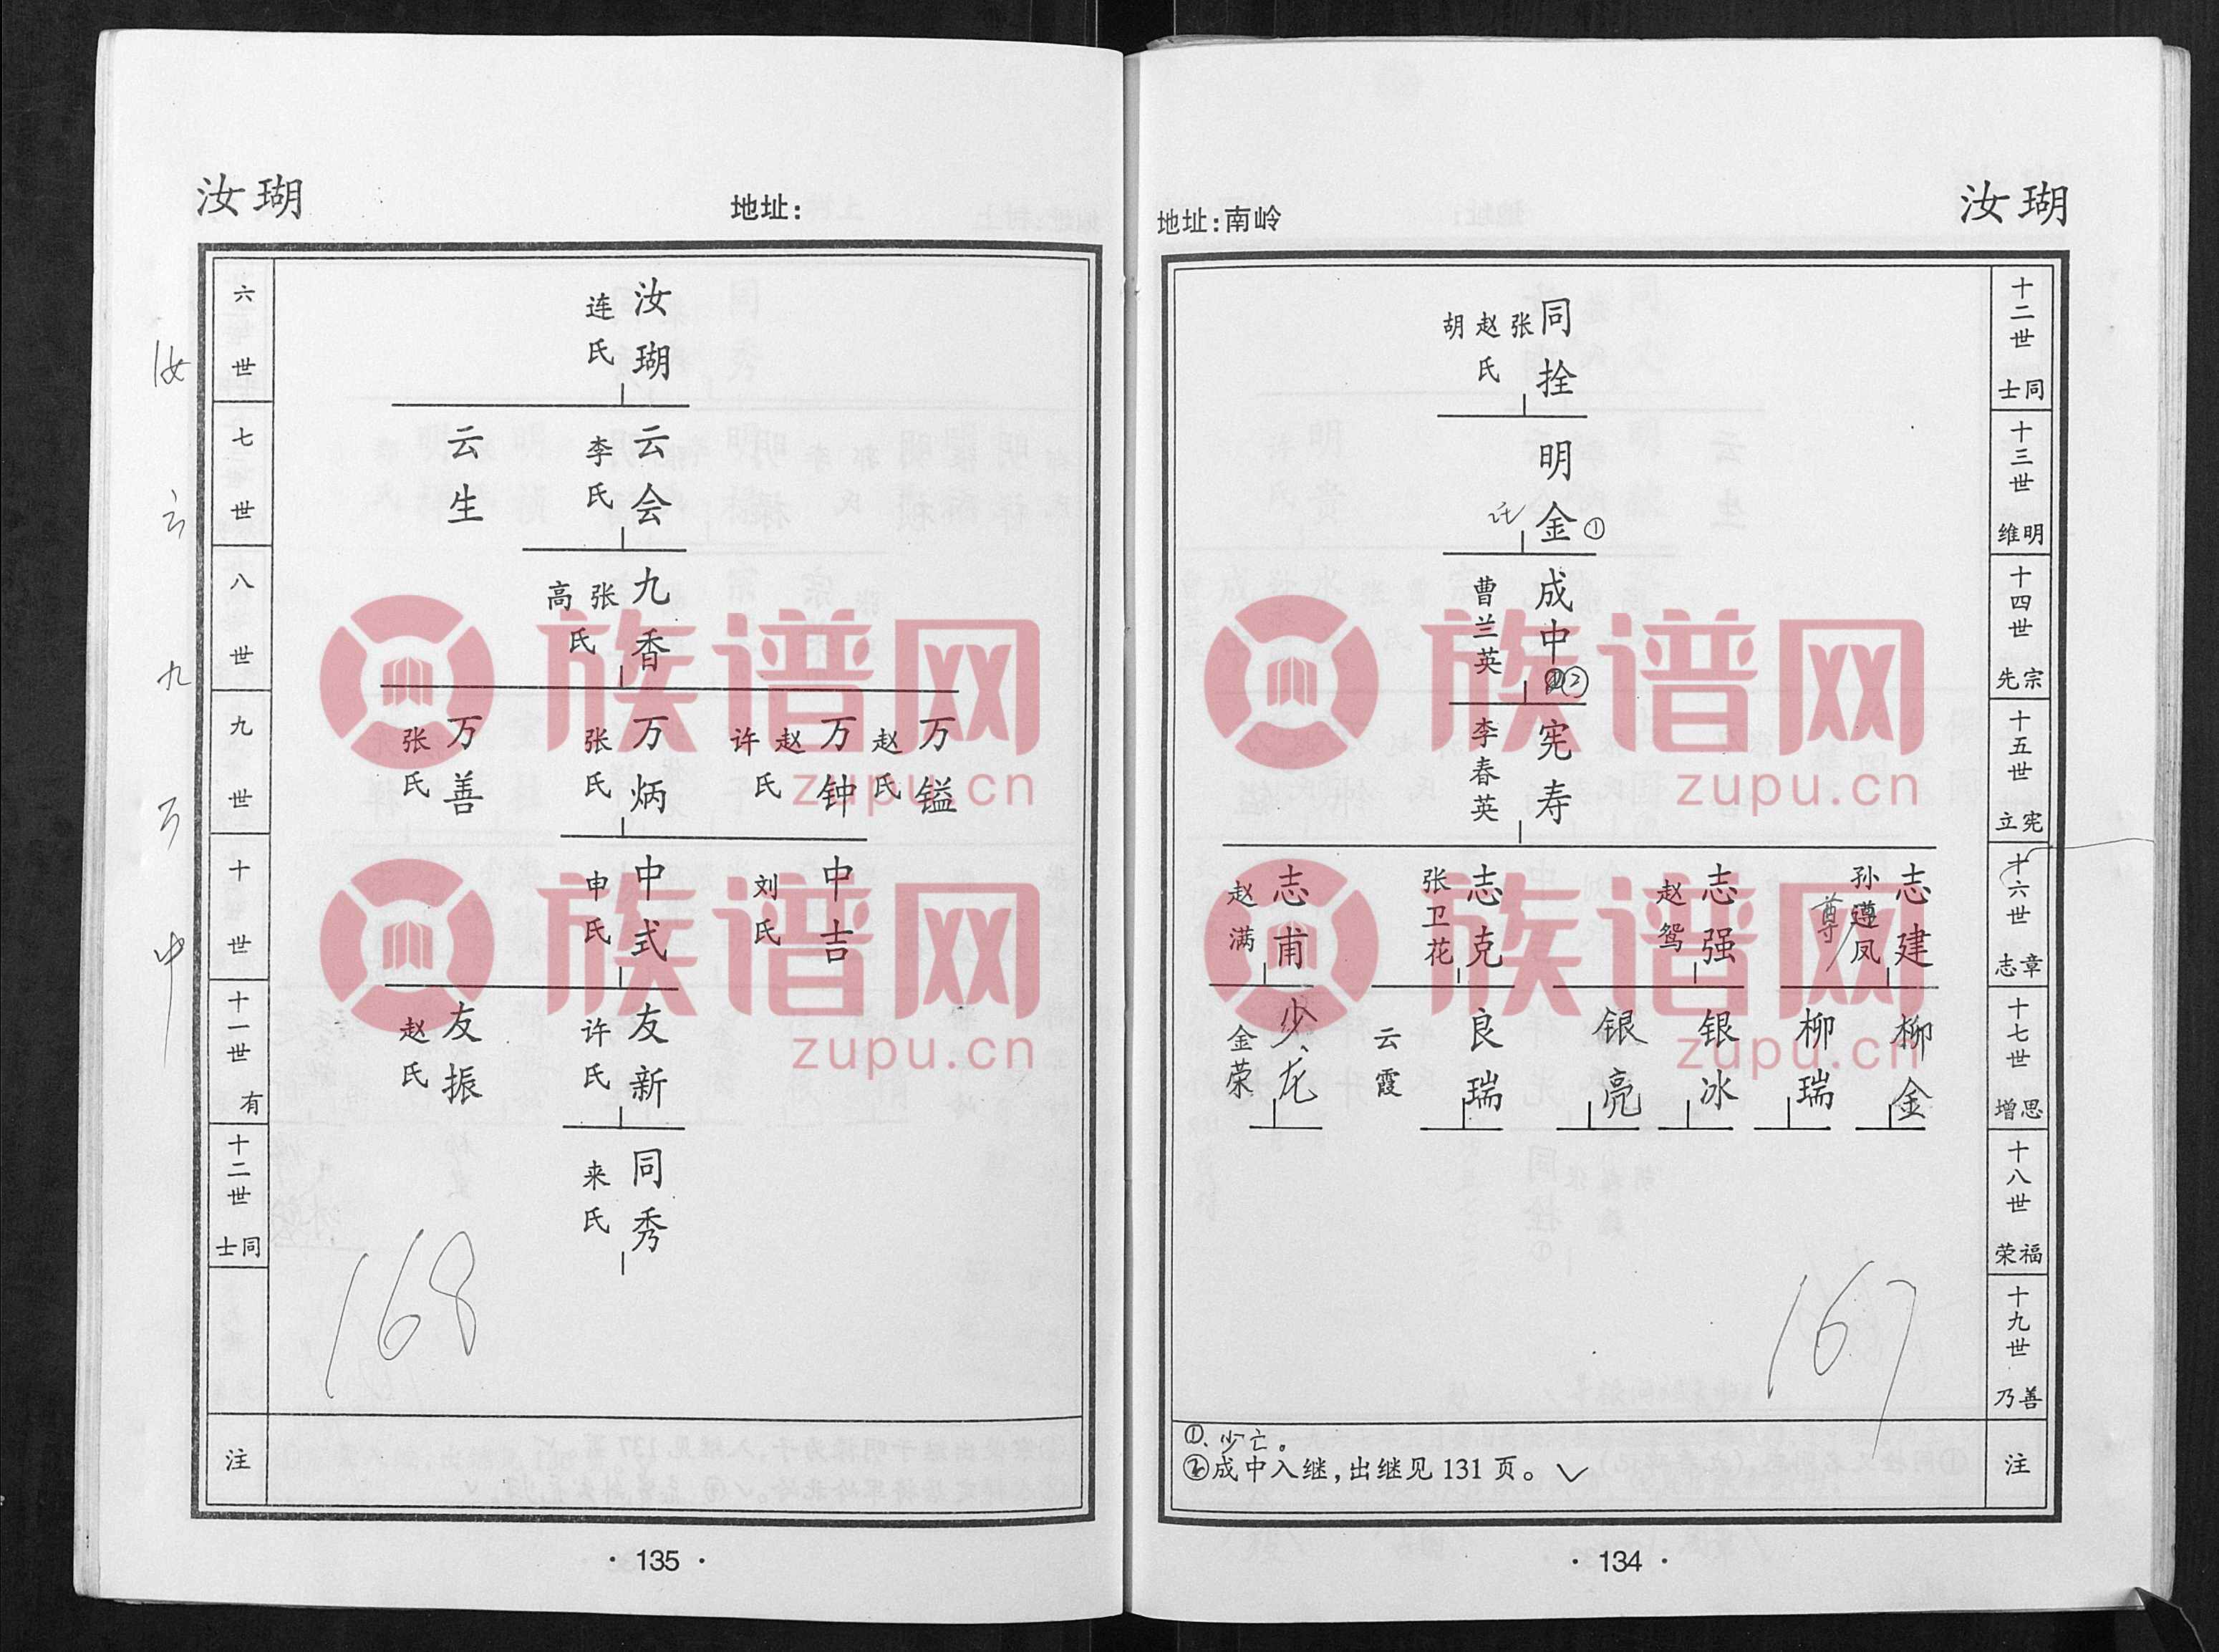 汝瑚
地址:南岭
十二世 士同
同拴 张赵胡氏
十三世 维明
明金①
十四世 先宗
成中② 曹兰英
十五世 立宪
宪寿 李春英
十六世 志章
志建 孙遵凤 尊
志强 赵鸳
志克 张卫花
志甫 赵满
十七世 增思
柳金
柳瑞
银冰
银亮
良瑞 云霞
少龙 金荣
十八世 荣福
十九世 乃善
167
注
①、少亡。
②成中入继,出继见131页。✓
· 134 ·
汝瑚
地址:
六世
汝瑚 连氏
七世
云会 李氏
云生
八世
九香 张高氏
九世
万镒 赵氏
万钟 赵许氏
万炳 张氏
万善 张氏
十世
中吉 刘氏
中式 申氏
十一世 有
友新 许氏
友振 赵氏
十二世 士同
同秀 来氏
168
注
· 135 ·
汝云九万中
族谱网
zupu.cn
族谱网
zupu.cn
族谱网
zupu.cn
族谱网
zupu.cn